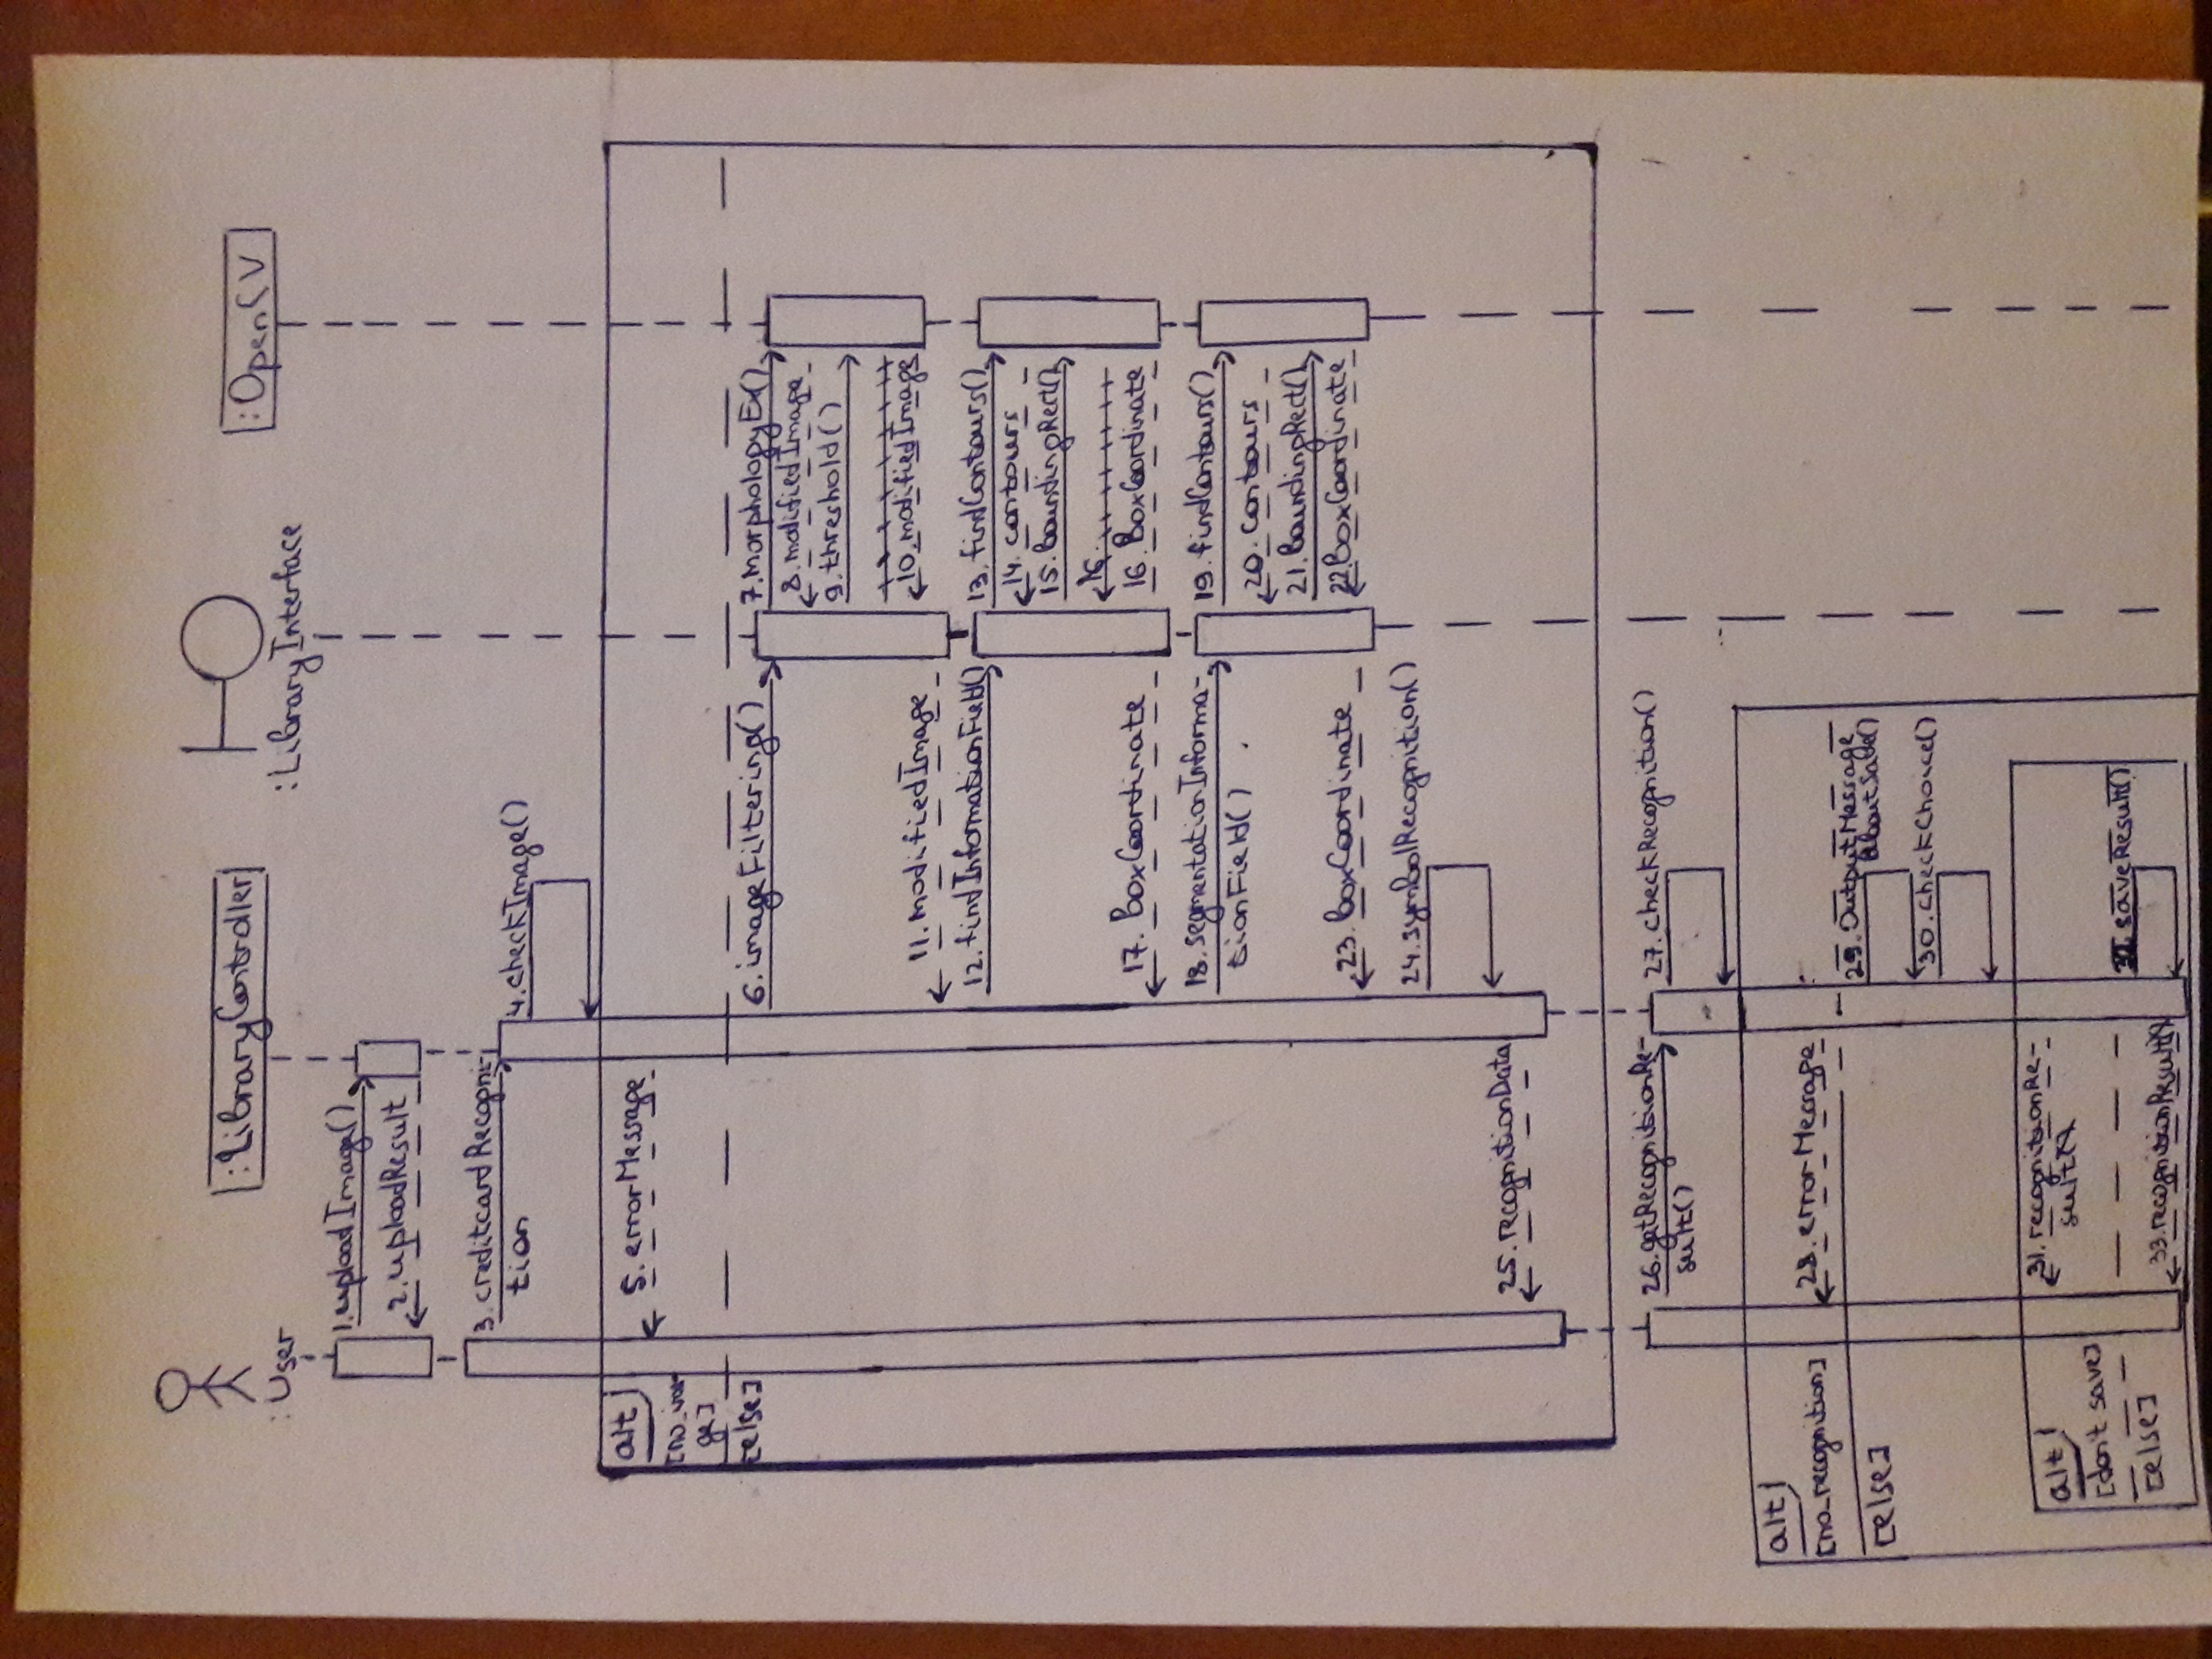 :User
:LibraryController
:LibraryInterface
:OpenCV
1.uploadImage()
2.uploadResult
3.creditcardRecogni-
tion
4.checkImage()
alt
5.errorMessage
[else]
6.imageFiltering()
7.morphologyEx()
8.modifiedImage
9.threshold()
10.modifiedImage
11.modifiedImage
12.findInformationField()
13.findContours()
14.contours
15.BoundingRect()
16.
16.BoxCoordinate
17.BoxCoordinate
18.segmentationInforma-
tionField()
19.findContours()
20.contours
21.BoundingRect()
22.BoxCoordinate
23.BoxCoordinate
24.symBolRecognition()
25.recognitionData
26.getRecognitionRe-
sult()
27.checkRecognition()
alt
[no_recognition]
28.errorMessage
[else]
29.OutputMessage
AboutSave()
30.checkChoice()
alt
[don't save]
31.recognitionRe-
sult
[else]
32.saveResult()
33.recognitionResult